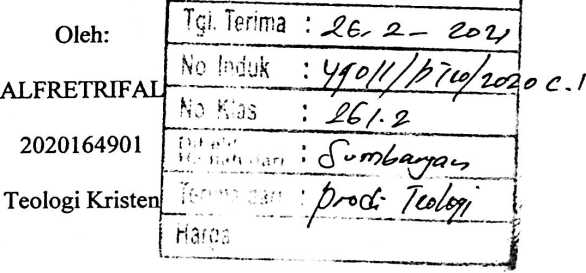 Oleh:
ALFRETRIFAL
2020164901
Teologi Kristen
Tgl. Terima : 26. 2 - 2021
No Induk : /2020 c.1
No Klas : 261.2
dari : Sumbangan
Terima dari : prodi Teologi
Harga